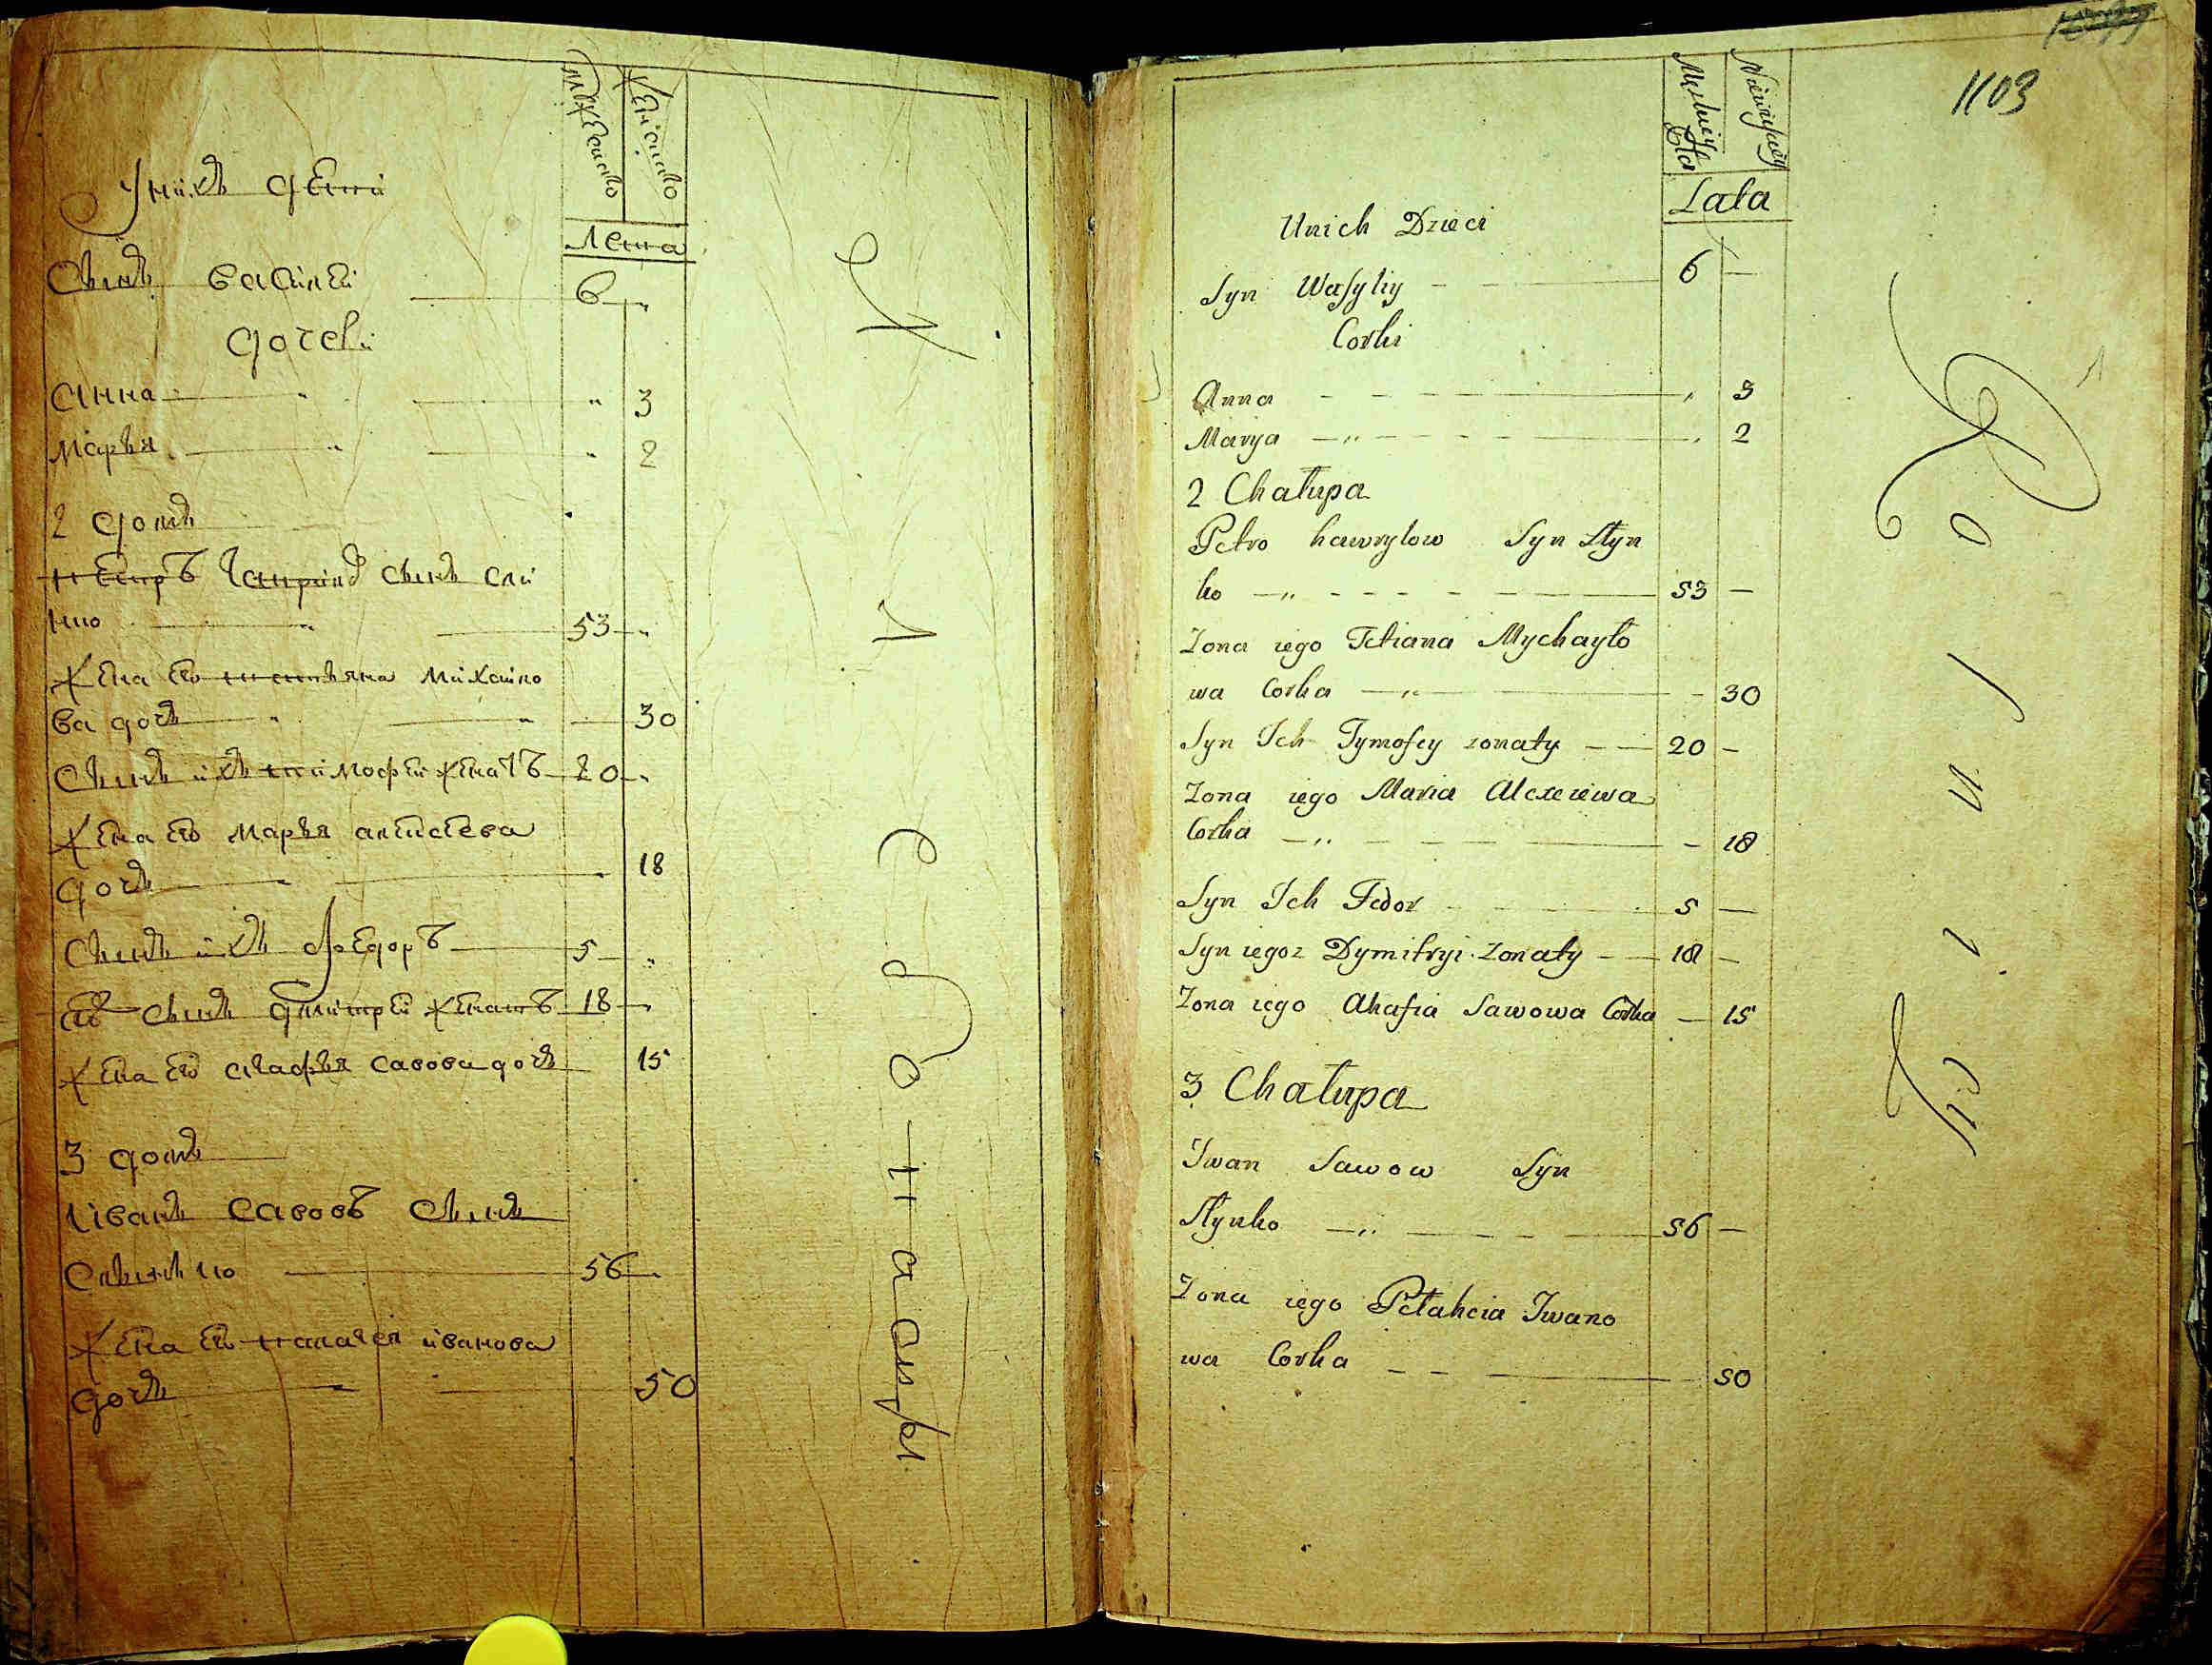 Мужеска Женска
Лета
У них дети
Сынъ Василей 6 „
дочери
Анна „ 3
Марья „ 2
2 домъ
Петръ Гаврилов сынъ Сли
нко 53 „
Жена его Татьяна Михайло
ва дочь 30
Сынъ ихъ Тимофей женатъ 20 „
Жена его Марья Алексеева
дочь 18
Сынъ ихъ Федоръ 5 „
Ево Сынъ Дмитрей женатъ 18
Жена его Агафья Савова дочь 15
3 домъ
Иванъ Савовъ Сынъ
Слынько 56
Жена его Палагея Иванова
дочь 50
1103
Lata
Unich Dzieci
Syn Wasyliy 6 —
Corki
Anna „ 3
Marya — „ 2
2 Chałupa
Petro hawrylow Syn Słyn
ko — „ — 53 —
Zona iego Tetiana Mychayło
wa Corka — „ — 30
Syn Ich Tymofey zonaty — 20 —
Zona iego Maria Alexeiewa
Corka — „ — 18
Syn Ich Fedor 5 —
Syn iegoz Dymitryi zonaty — 18 —
Zona iego Ahafia Sawowa Corka — 15
3 Chałupa
Iwan Sawow Syn
Słynko — „ — 56 —
Zona iego Pełahcia Iwano
wa Corka — 50